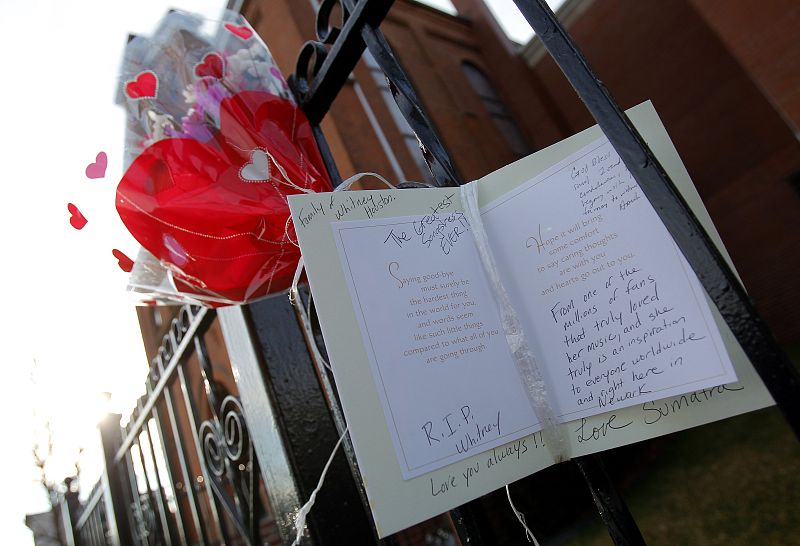 Family of Whitney Houston.
The Greatest
Songstress
EVER!!
Saying good-bye
must surely be
the hardest thing
in the world for you,
and words seem
like such little things
compared to what all of you
are going through.
R.I.P.
Whitney
Love you always!!
God Bless
and
Hope it will bring
some comfort
to say caring thoughts
are with you
and hearts go out to you.
From one of the
millions of fans
that truly loved
her music, and she
truly is an inspiration
to everyone worldwide
and right here in
Newark
Love Sumatra